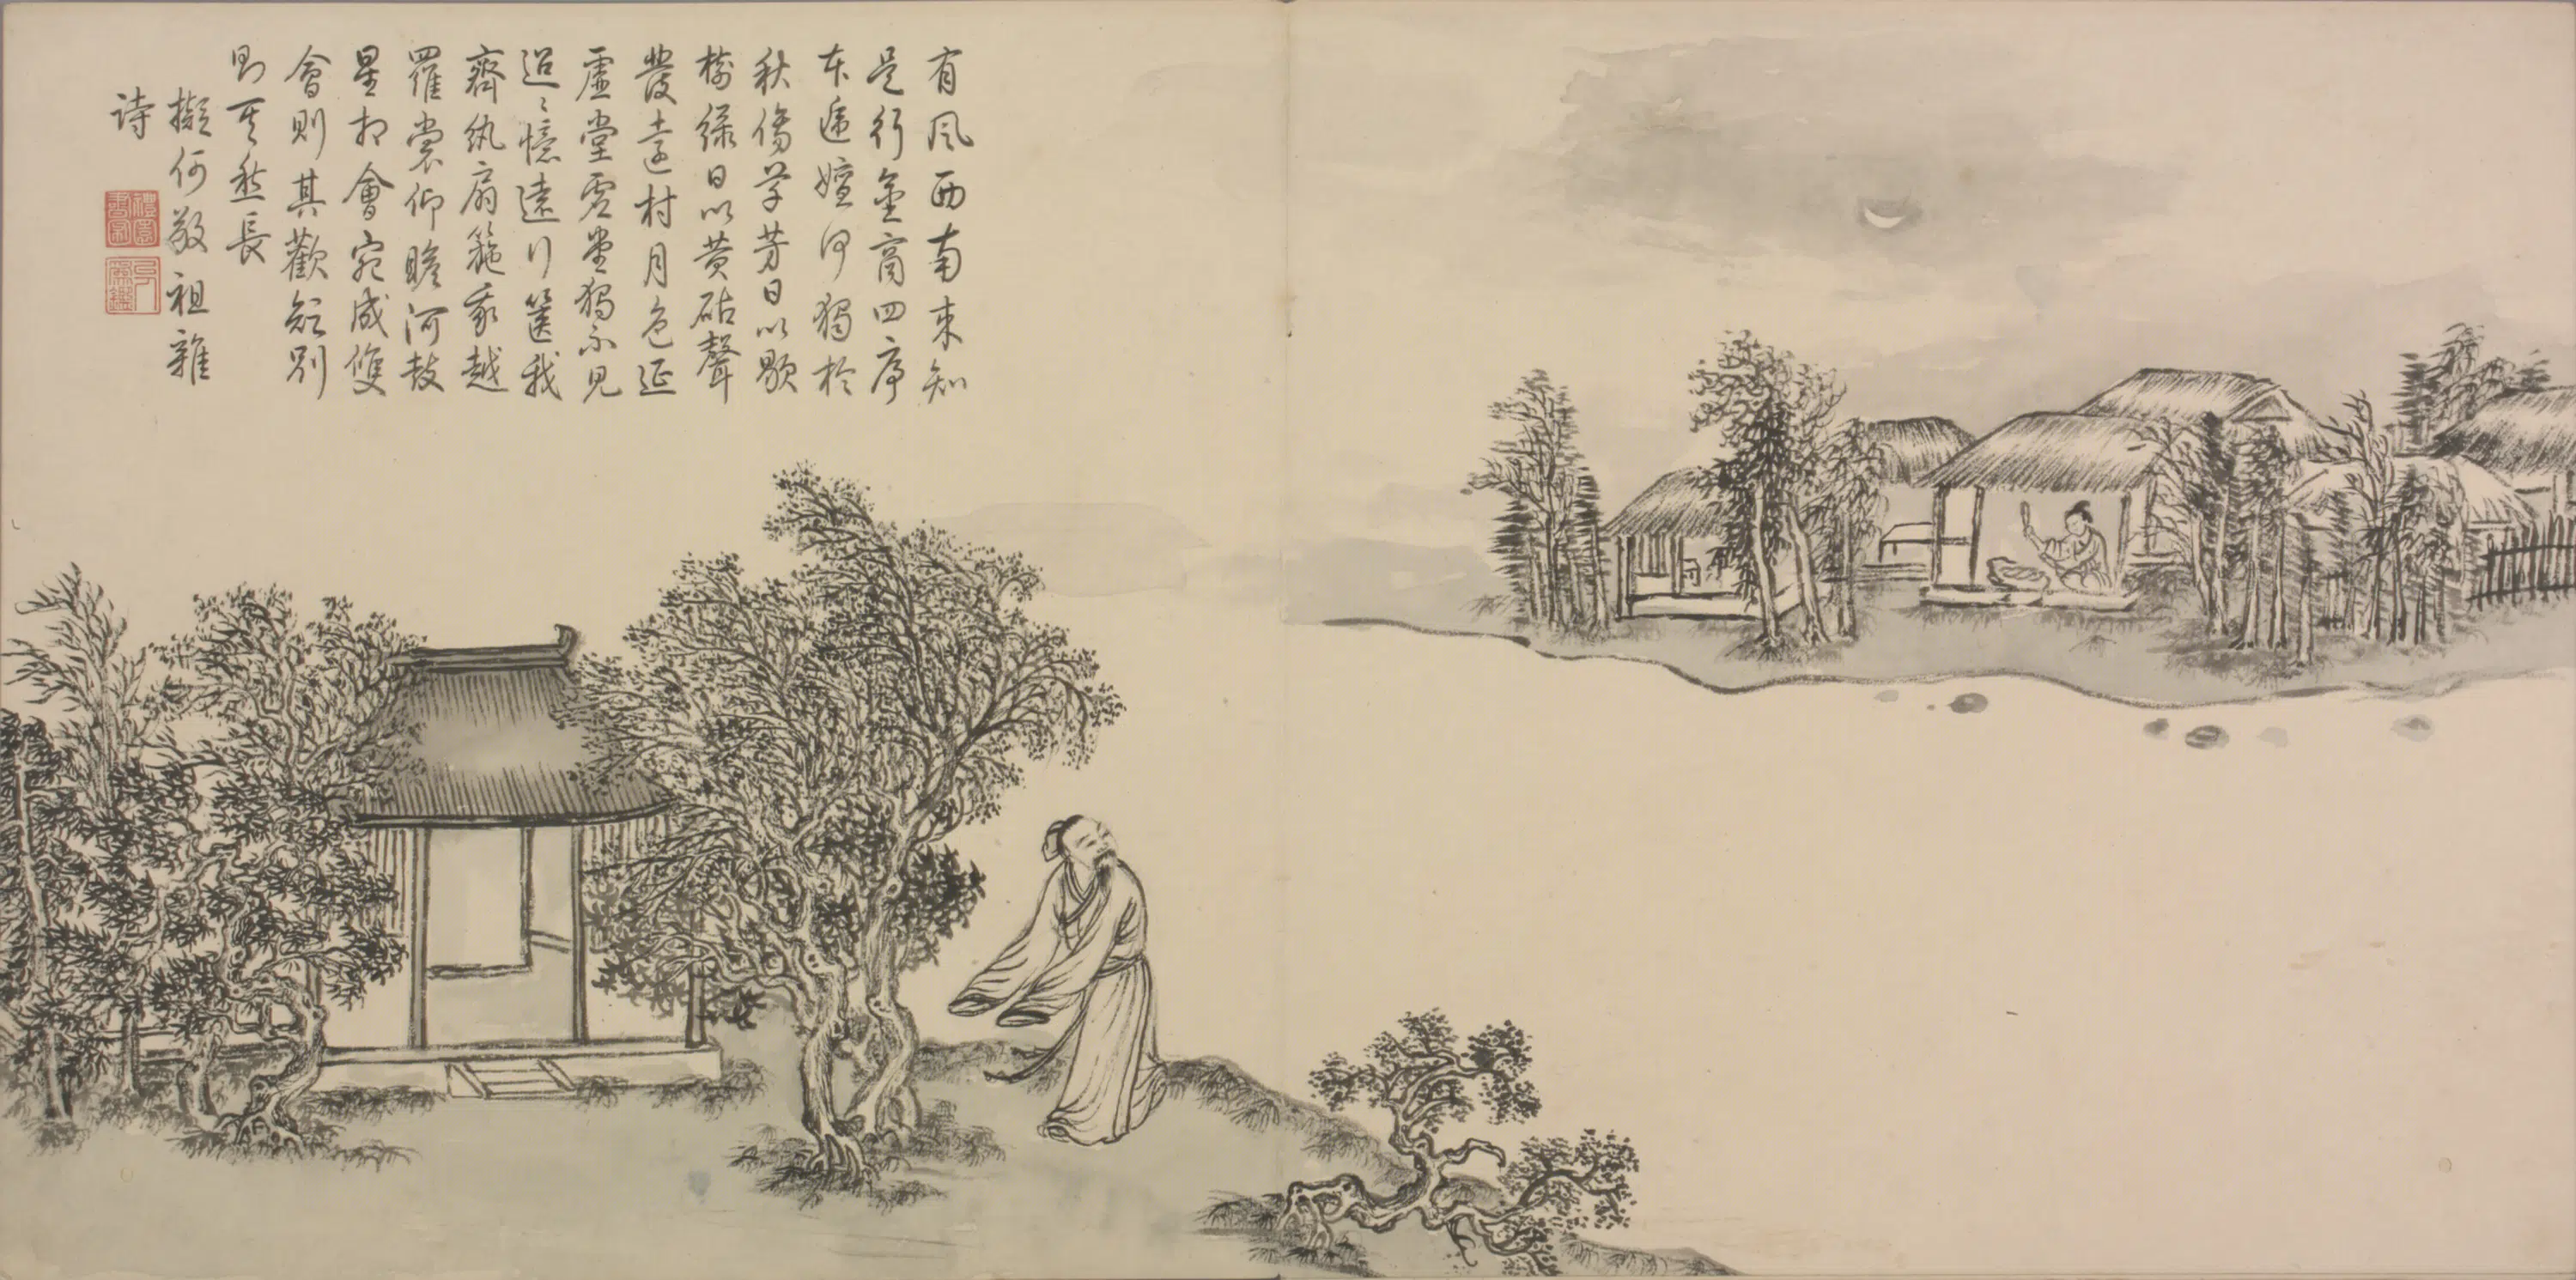 有風西南來知
是行金商四序
本遞嬗何獨於
秋傷草芳日以歇
樹綠日以黃砧聲
發遠村月色延
虛堂虛堂獨不見
迢〻憶遠行篋我
齊紈扇箷我越
羅裳仰瞻河鼓
星相會宛成雙
會則其歡短別
則其愁長
擬何敬祖雜
詩